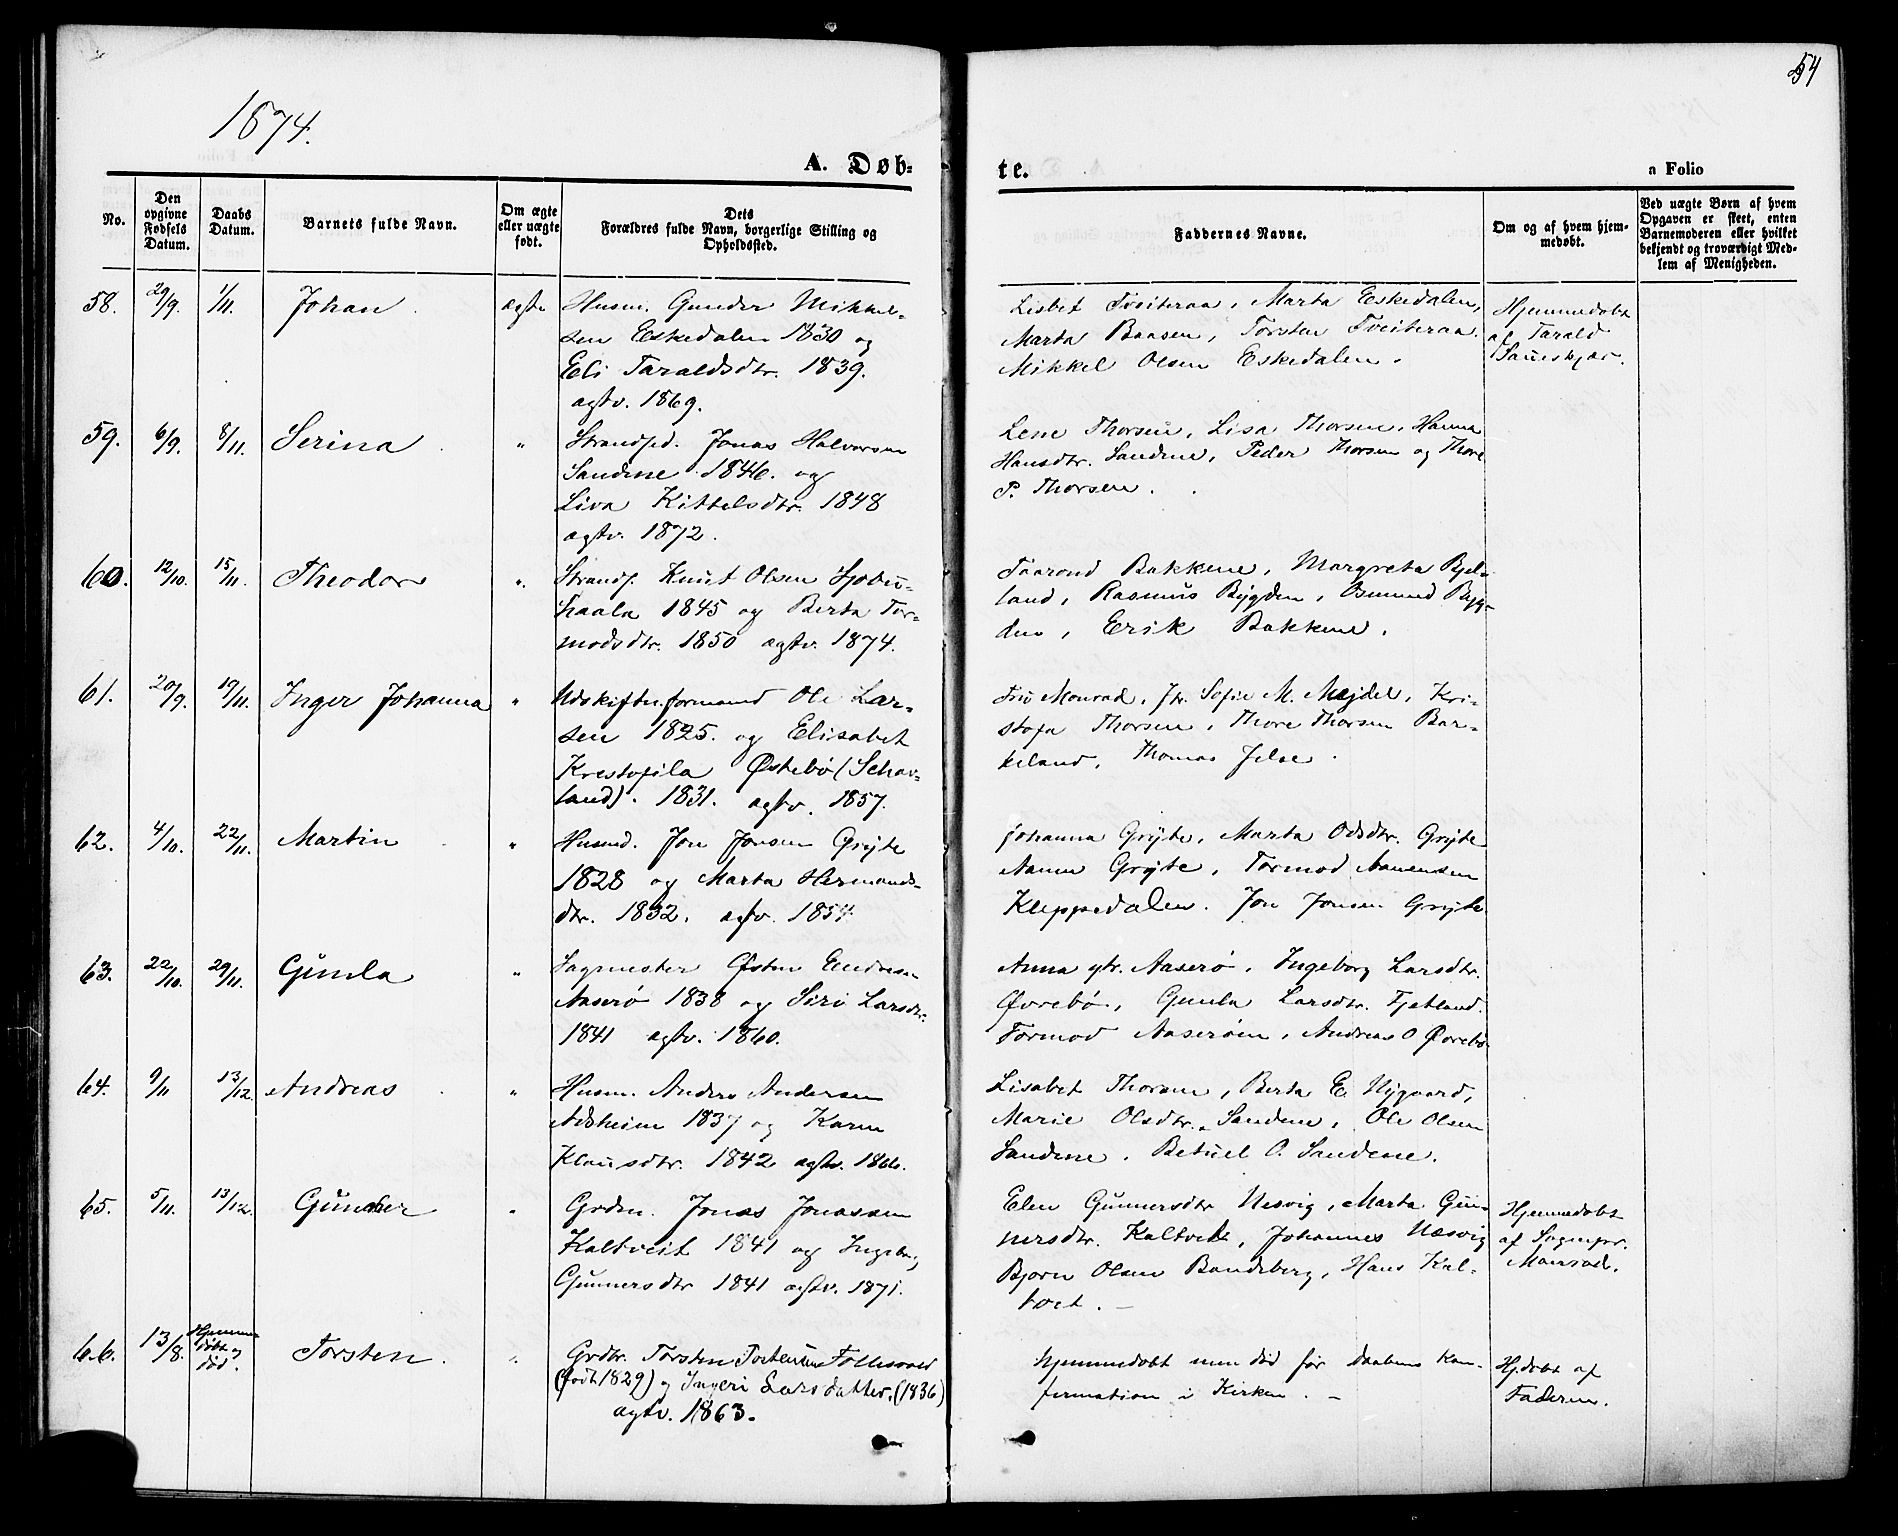 54
1874.
A. Døb-
te.
a Folio
No.
Den
opgivne
Fødsels
Datum.
Daabs
Datum.
Barnets fulde Navn.
Om ægte
eller uægte
født.
Dets
Forældres fulde Navn, borgerlige Stilling og
Opholdssted.
Faddernes Navne.
Om og af hvem hjem-
medøbt.
Ved uægte Børn af hvem
Opgaven er skeet, enten
Barnemoderen eller hvilket
bekjendt og troværdigt Med-
lem af Menigheden.
58. 29/9. 1/11. Johan ægte Husm. Gunder Mikkel-
sen Eskedalen 1830 og
Eli Taraldsdtr. 1839.
ægtv. 1869.
Lisbet Tveiteraa, Marta Eskedalen,
Marta Baasen, Torsten Tveiteraa.
Mikkel Olsen Eskedalen.
Hjemmedøbt
af Tarald
59. 6/9. 8/11. Serina " Strandsid. Jonas Halvorsen
Sandene 1846. og
Liva Kittelsdtr. 1848
ægtv. 1872.
Lene Thorsen, Lisa Thorsen, Hanna
Hansdtr. Sandene, Peder Thorsen og Thore
P. Thorsen.
60. 12/10. 15/11. Theodor " Strands. Knut Olsen
1845 og Berta Tor-
modsdtr. 1850 ægtv. 1874.
Taarond Bakkene, Margreta Bjel-
land, Rasmus Bygden, Osmund Byg-
den, Erik Bakkene.
61. 20/9. 19/11. Inger Johanna " Udskiftn.formand Ole Lar-
sen 1825. og Elisabet
Krestofila Østebø (Schav-
land). 1831. ægtv. 1857.
Fru Monrad, Fr. Sofie M. Mejdel, Kri-
stofa Thorsen, Thore Thorsen Bar-
keland, Thomas Jelse.
62. 4/10. 22/11. Martin " Husmd. Jon Jonsen Gryte
1828 og Marta Hermands-
dtr. 1832. ægtv. 1854.
Johanna Gryte, Marta Odsdtr. Gryte
Aanen Gryte, Tormod Aanensen
Kleppedalen. Jon Jonsen Gryte
63. 22/10. 29/11. Gunla " Sagmester Østen Endresen
Aaserø 1838 og Siri Larsdtr.
1841 ægtv. 1860.
Anna gtr. Aaserø, Ingeborg Larsdtr.
Øvrebø, Gunla Larsdtr. Fjetland.
Tormod Aaserøen, Andreas O Øvrebø
64. 9/11 13/12 Andreas " Husm. Anders Andersen
Adsheim 1837 og Karen
Klausdtr. 1842 ægtv. 1866.
Lisabet Thorsen, Berta E. Nygaard,
Marie Olsdtr. Sandene, Ole Olsen
Sandene, Betuel O. Sandene.
65. 5/11. 13/12. Gunder " Grdm. Jonas Jonassen
Kaltveit 1841 og Ingeborg
Gunnersdtr 1841 ægtv. 1871.
Elen Gunnersdtr Nesvig, Marta Gun-
nersdtr. Kaltveit, Johannes Næsvig
Bjørn Olsen Bandeberg, Hans Kal-
tvet. —
Hjemmedøbt
af Sognepr.
Monrad.
66. 13/8. Hjemme-
døbt og
død.
Torsten " Grdbr. Torsten Torstensen Follesvold
(født 1829) og Ingeri Larsdatter. (1836)
ægtv. 1863.
Hjemmedøbt men død før Daabens Kon-
firmation i Kirken. —
Hj.døbt af
Faderen.